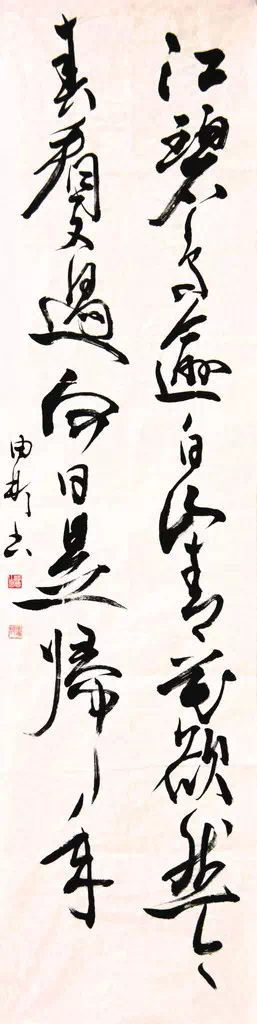 江碧鳥逾白山青花欲然今
春看又過何日是歸年
由彬书